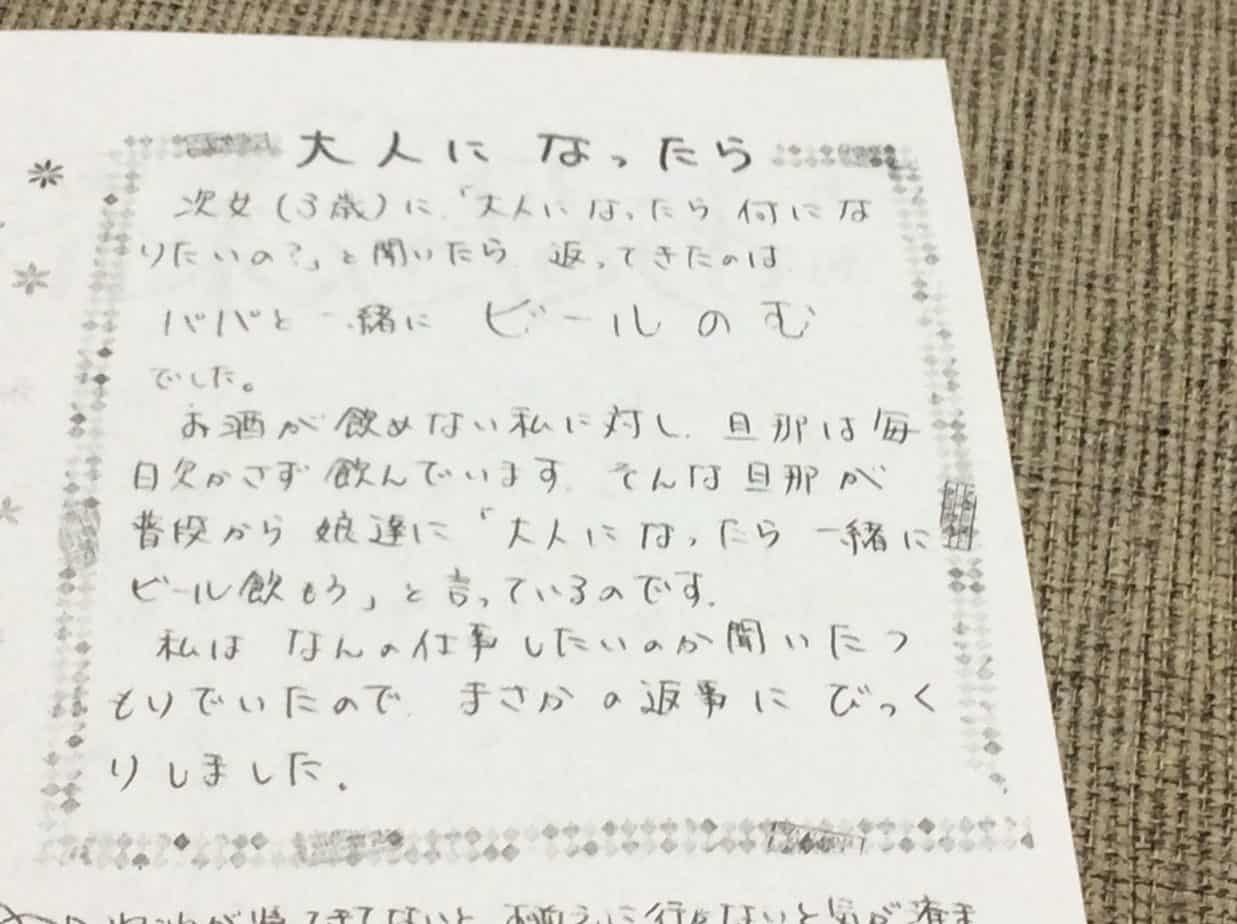 大人になったら
次女(3歳)に「大人になったら何にな
りたいの?」と聞いたら 返ってきたのは
パパと一緒に ビールのむ
でした。
お酒が飲めない私に対し、旦那は毎
日欠かさず飲んでいます。そんな旦那が
普段から娘達に「大人になったら一緒に
ビール飲もう」と言っているのです。
私は なんの仕事したいのか聞いたつ
もりでいたので、まさかの返事に びっく
りしました。